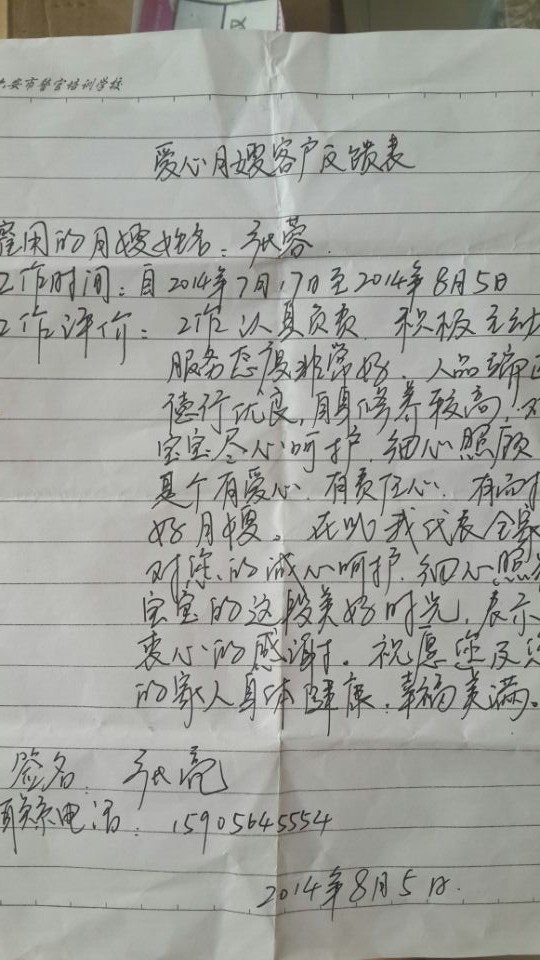 六安市警官培训学校
爱心月嫂客户反馈表
雇用的月嫂姓名：张蓉.
工作时间：自2014年7月17日至2014年8月5日
工作评价：工作认真负责、积极主动
服务态度非常好、人品端正
德行优良，自身修养较高，对
宝宝尽心呵护，细心照顾
是个有爱心、有责任心、有耐
好月嫂。在此我代表全家
对您的诚心呵护、细心照
宝宝的这段美好时光，表示
衷心的感谢。祝愿您及您
的家人身体健康，幸福美满。
签名：张亮
联系电话：15905645554
2014年8月5日.